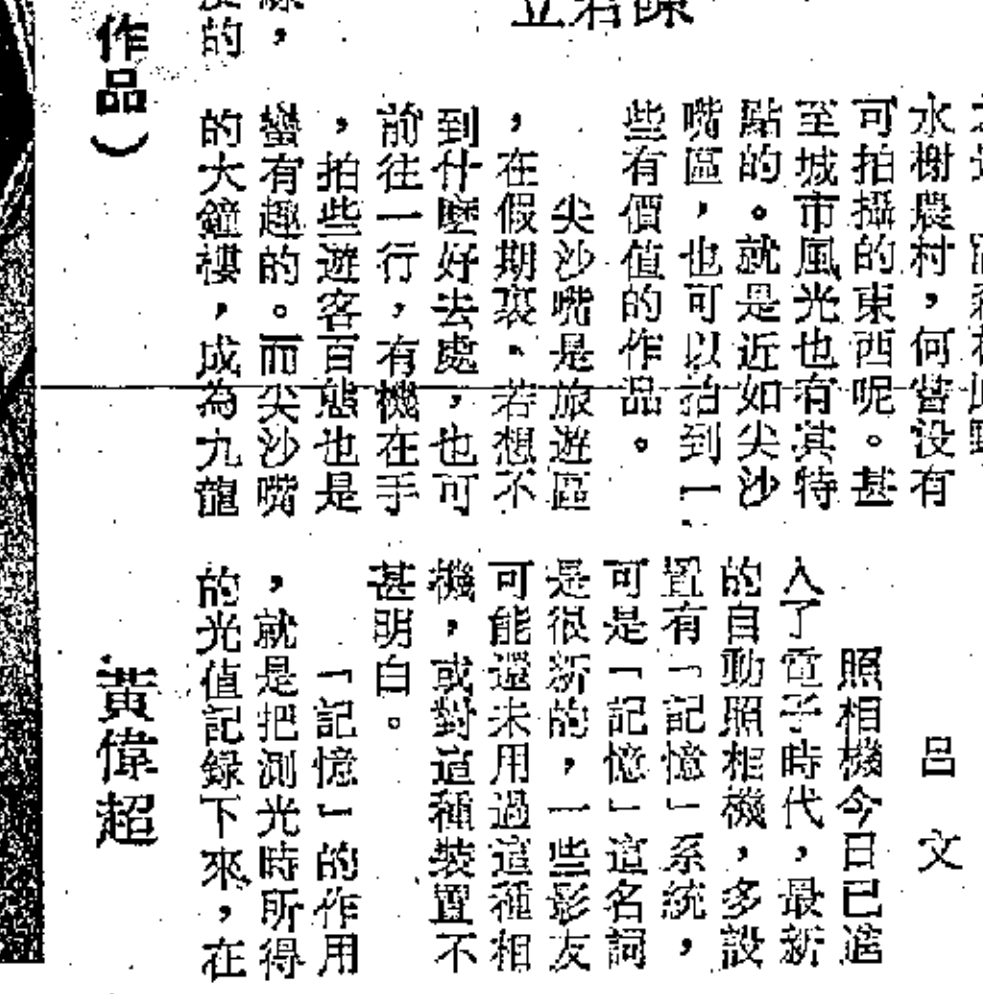 水榭農村，何嘗没有
可拍攝的東西呢。甚
至城市風光也有其特
點的。就是近如尖沙
嘴區，也可以拍到一
些有價值的作品。
尖沙嘴是旅遊區
，在假期裏、若想不
到什麼好去處，也可
前往一行，有機在手
，拍些遊客百態也是
蠻有趣的。而尖沙嘴
的大鐘樓，成為九龍
呂文
照相機今日已進
入了電子時代，最新
的自動照相機，多設
置有「記憶」系統，
可是「記憶」這名詞
是很新的，一些影友
可能還未用過這種相
機，或對這種裝置不
甚明白。
「記憶」的作用
，就是把測光時所得
的光值記録下來，在
作品）
黃偉超